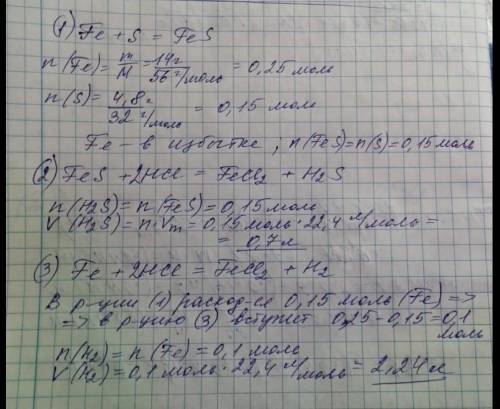 1) Fe + S = FeS
n(Fe) = m/M = 14г/56 г/моль = 0,25 моль
n(S) = 4,8г/32 г/моль = 0,15 моль
Fe - в избытке; n(FeS) = n(S) = 0,15 моль
2) FeS + 2HCl = FeCl₂ + H₂S
n(H₂S) = n(FeS) = 0,15 моль
V(H₂S) = n·Vm = 0,15 моль · 22,4 л/моль =
= 0,7 л
3) Fe + 2HCl = FeCl₂ + H₂
В р-ции (1) расход-се 0,15 моль (Fe) =>
=> в р-цию (3) вступит 0,25 - 0,15 = 0,1
моль
n(H₂) = n(Fe) = 0,1 моль
V(H₂) = 0,1 моль · 22,4 л/моль = 2,24 л